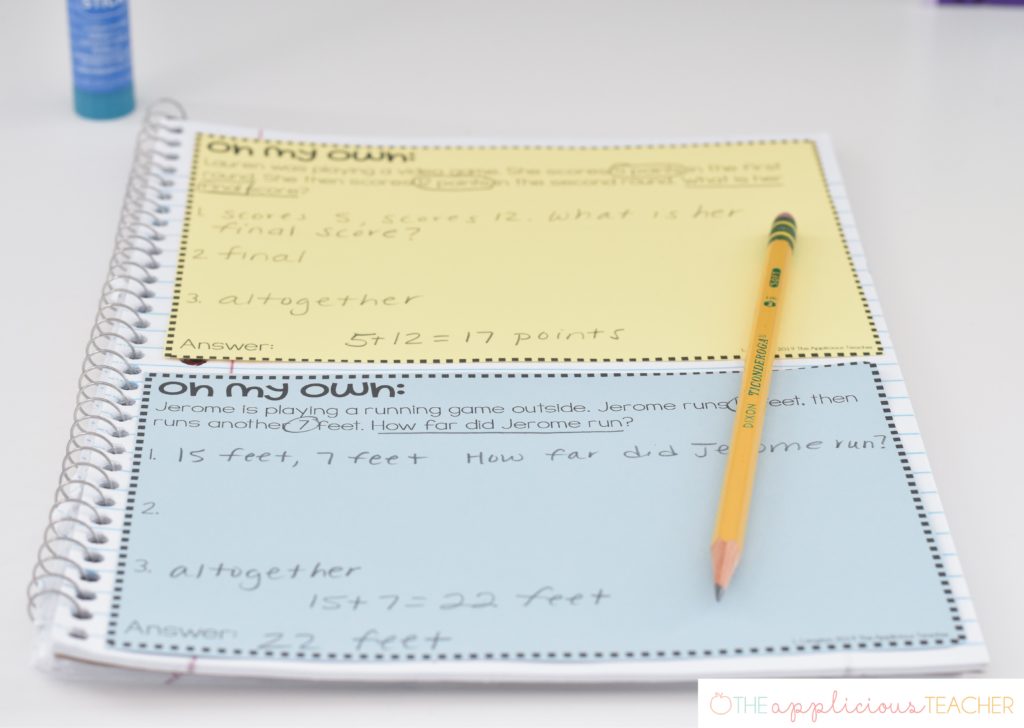 STICK
Oh my own:
Lauren was playing a video game. She scored 5 points in the first
round. She then scored 12 points in the second round. What is her
final score?
1. scores 5, scores 12. What is her
final score?
2. final
3. altogether
5+12=17 points
Answer:
2019 The Applicious Teacher
Oh my own:
Jerome is playing a running game outside. Jerome runs feet, then
runs another 7 feet. How far did Jerome run?
1. 15 feet, 7 feet How far did Jerome run?
2.
3. altogether
15+7=22 feet
Answer: 22 feet
2019 The Applicious Teacher
DIXON TICONDEROGA
THE applicious TEACHER